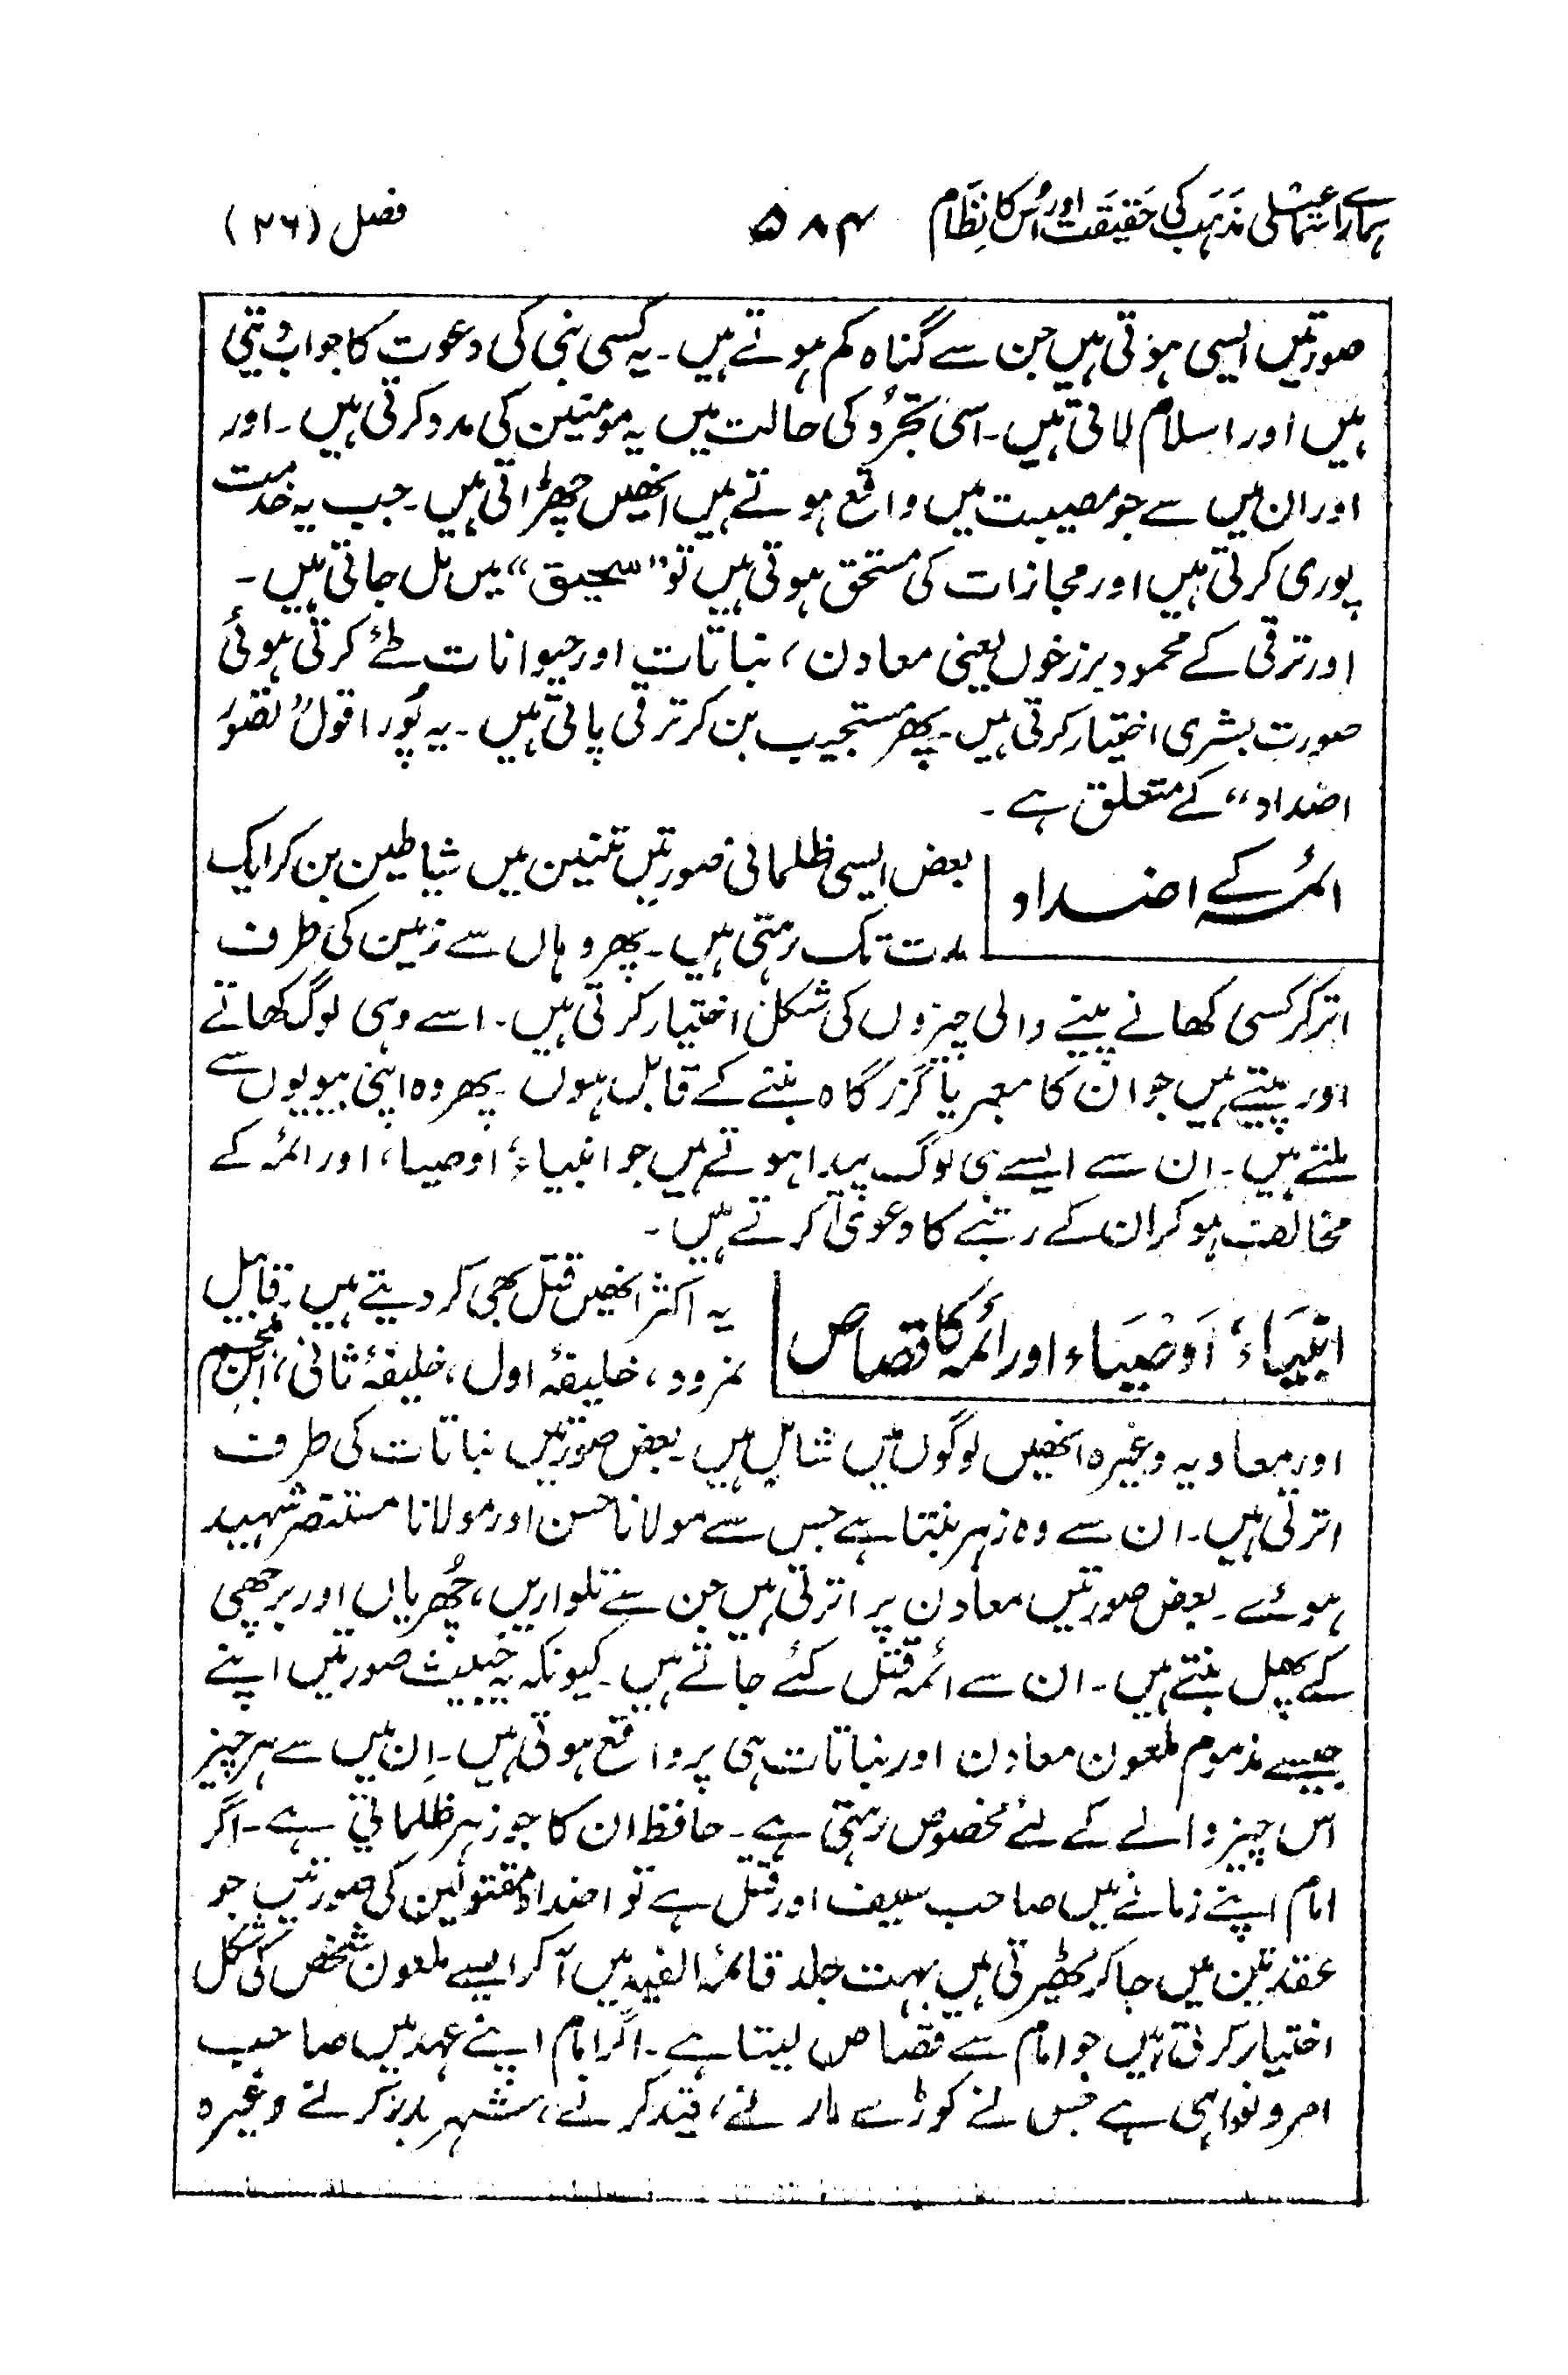 ہمارے اسماعیلی مذہب کی حقیقت اور اُس کا نظام ۵۸۴ فصل (۲۶)
صورتیں ایسی ہوتی ہیں جن سے گناہ کم ہوتے ہیں۔ یہ کسی نبی کی دعوت کا جواب دیتی
ہیں اور اسلام لاتی ہیں۔ اسی تجرُّد کی حالت میں یہ مومنین کی مدد کرتی ہیں۔ اور
اور ان میں سے جو مصیبت میں واقع ہوتے ہیں انھیں چھڑاتی ہیں۔ جب یہ خدمت
پوری کرتی ہیں اور مجازات کی مستحق ہوتی ہیں تو "سحیق" میں مل جاتی ہیں۔
اور ترقی کے محمود برزخوں یعنی معادن، نباتات اور حیوانات طئے کرتی ہوئی
صورت بشری اختیار کرتی ہیں۔ پھر مستجیب بن کر ترقی پاتی ہیں۔ یہ پُورا قول "تصوّر
اضداد" کے متعلق ہے۔
ائمہ کے اضداد
بعض ایسی ظلمانی صورتیں تنین میں شیاطین بن کر ایک
مدت تک رہتی ہیں۔ پھر وہاں سے زمین کی طرف
اتر کر کسی کھانے پینے والی چیزوں کی شکل اختیار کرتی ہیں۔ اسے وہی لوگ کھاتے
اور پیتے ہیں جو ان کا معبر یا گزرگاہ بننے کے قابل ہوں۔ پھر وہ اپنی بیویوں سے
ملتے ہیں۔ ان سے ایسے ہی لوگ پیدا ہوتے ہیں جو انبیاء، اوصیاء، اور ائمہ کے
مخالف ہو کر ان کے رتبے کا دعویٰ کرتے ہیں۔
انبیَاء، اَوصیَاء اور ائمہ کا قصاص
یہ اکثر انھیں قتل بھی کر دیتے ہیں۔ قابیل
نمرود، خلیفۂ اول، خلیفۂ ثانی، ابن ملجم
اور معاویہ وغیرہ انھیں لوگوں میں شامل ہیں۔ بعض صورتیں نباتات کی طرف
اترتی ہیں۔ ان سے وہ زہر بنتا ہے جس سے مولانا حسن اور مولانا مستنصر شہید
ہوئے۔ بعض صورتیں معادن پر اترتی ہیں جن سے تلواریں، چُھریاں اور برچھی
کے پھل بنتے ہیں۔ ان سے ائمہ قتل کئے جاتے ہیں۔ کیونکہ یہ خبیث صورتیں اپنے
جیسے مذموم ملعون معادن اور نباتات ہی پر واقع ہوتی ہیں۔ اِن میں سے ہر چیز
اس چیز والے کے لئے مخصوص رہتی ہے۔ حافظ ان کا جو زہر ظلماتی ہے۔ اگر
امام اپنے زمانے میں صاحب سیف اور قتل ہے تو اضداد مقتولین کی صورتیں جو
عقدتین میں جا کر ٹھیرتی ہیں بہت جلد قائمۃ الفیہ میں آ کر ایسے ملعون شخص کی شکل
اختیار کرتی ہیں جو امام سے قصاص لیتا ہے۔ اگر امام اپنے عہد میں صاحب
امر و نواہی ہے جس نے کوڑے مارنے، قید کرنے، شہر بدر کرنے وغیرہ